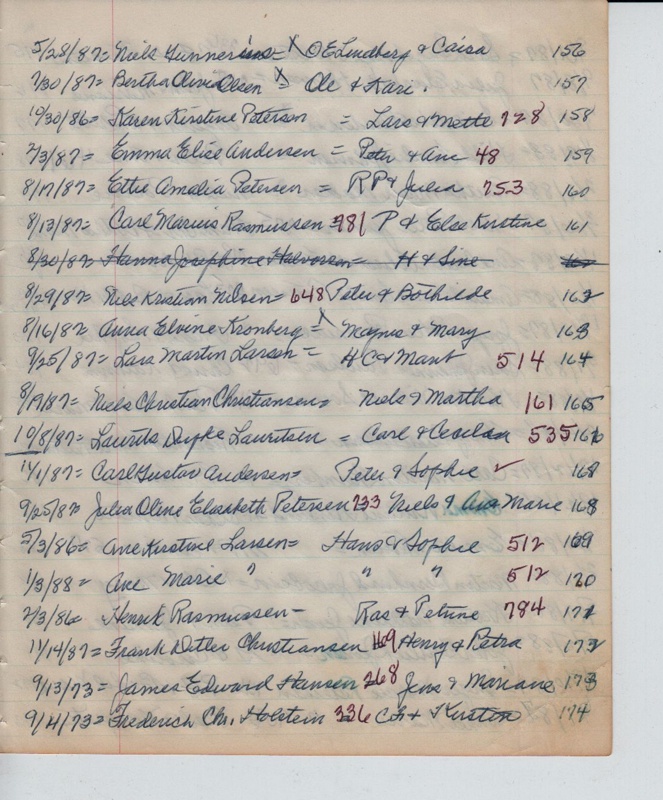 5/28/87= Niels Gunnerius= X OE Lindberg & Caisa 156
7/30/87= Bertha Olivia Olsen X= Ole & Kari. 157
10/30/86= Karen Kirstine Peterson = Lars & Mette 728 158
2/3/87= Emma Elise Andersen = Peter & Ane 48 159
8/17/87= Ettie Amalia Petersen = RP & Julia 753 160
8/13/87= Carl Marius Rasmussen =781 P & Else Kirstine 161
8/30/87= Hanna Josephine Halvorsen= H & Sine
8/29/87= Nels Kristian Nilsen= 648 Peter & Bothilde 162
8/16/87= Anna Elvine Kronberg= X Magnus & Mary 163
9/25/87= Lars Martin Larsen= HC & Mant 514 164
8/19/87= Niels Christian Christiansen= Niels & Martha 161 165
10/8/87= Laurits Lauritsen = Carl & 535 166
11/1/87= Carl Gustav Andersen= Peter & Sophie ✓ 168
9/25/87= Julia Oline Elisabeth Petersen 733 Niels & Ana Marie 168
5/3/86= Ane Kirstine Larsen= Hans & Sophie 512 169
1/3/88= Ane Marie " " " 512 170
2/3/86= Henrik Rasmussen- Ras & Petrine 784 171
11/14/87= Frank Ditlev Christiansen 169 Henry & Petra 172
9/13/73= James Edward Hansen 268 Jens & Mariane 173
9/4/73= Frederich Chr. Holstein 336 Ch & Kirsten 174